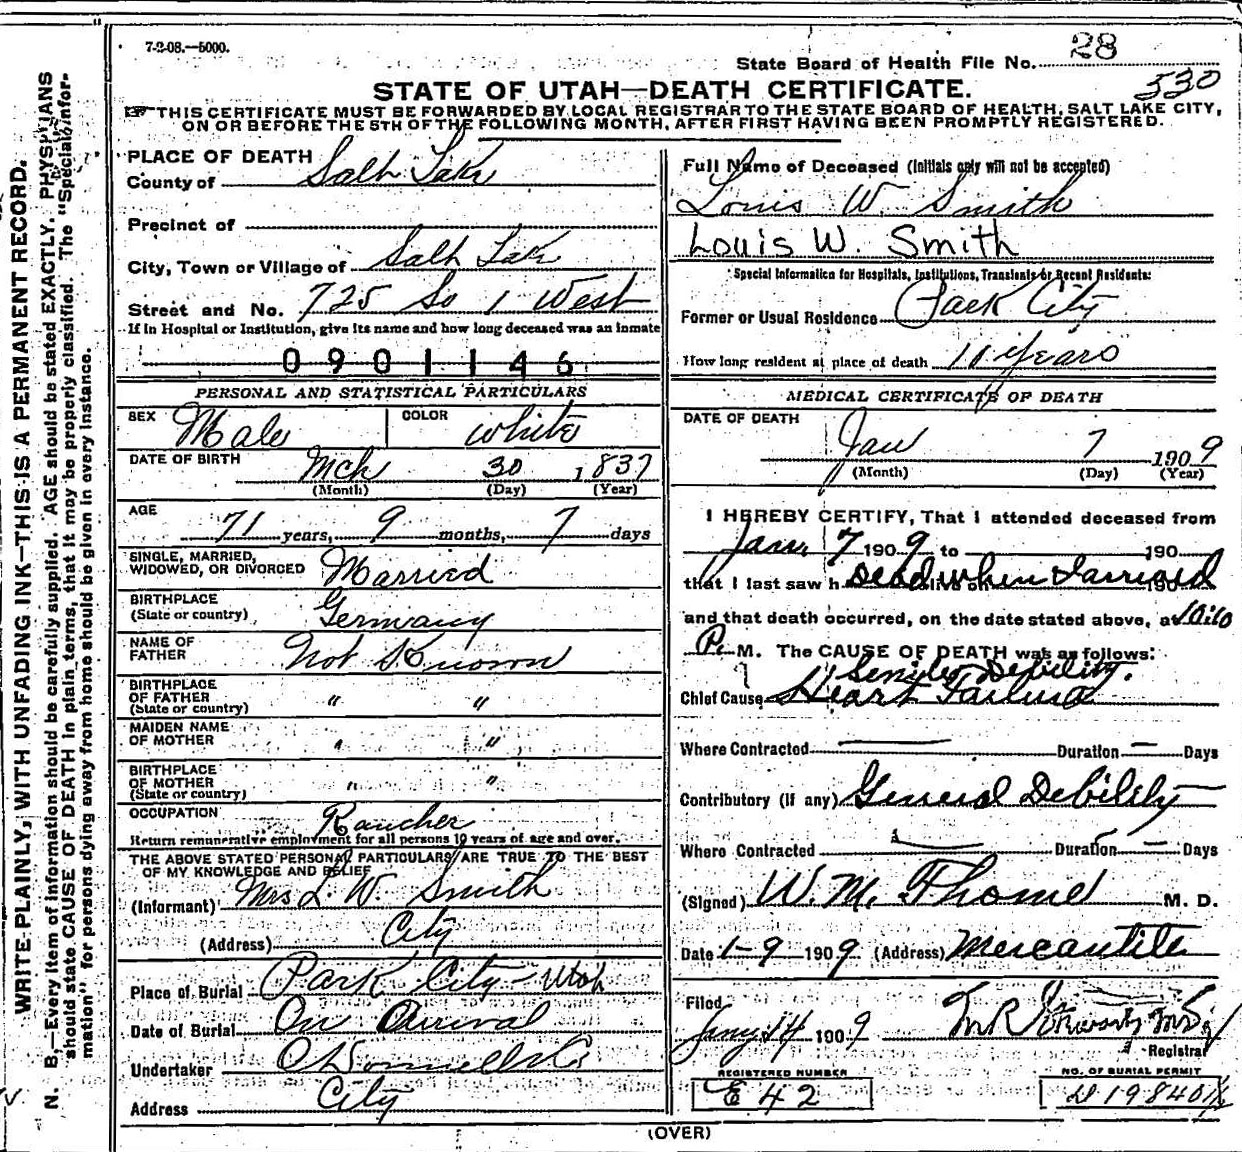 7-2-08.—5000.
State Board of Health File No. 28
530
STATE OF UTAH—DEATH CERTIFICATE.
THIS CERTIFICATE MUST BE FORWARDED BY LOCAL REGISTRAR TO THE STATE BOARD OF HEALTH, SALT LAKE CITY,
ON OR BEFORE THE 5TH OF THE FOLLOWING MONTH, AFTER FIRST HAVING BEEN PROMPTLY REGISTERED.
WRITE PLAINLY, WITH UNFADING INK—THIS IS A PERMANENT RECORD.
N. B.—Every item of information should be carefully supplied. AGE should be stated EXACTLY. PHYSICIANS
should state CAUSE OF DEATH in plain terms, that it may be properly classified. The "Special Infor-
mation" for persons dying away from home should be given in every instance.
PLACE OF DEATH
County of Salt Lake
Precinct of
City, Town or Village of Salt Lake
Street and No. 725 So 1 West
If in Hospital or Institution, give its name and how long deceased was an inmate
0901146
PERSONAL AND STATISTICAL PARTICULARS
SEX Male COLOR white
DATE OF BIRTH Mch 30 1837
(Month) (Day) (Year)
AGE 71 years, 9 months, 7 days
SINGLE, MARRIED,
WIDOWED, OR DIVORCED Married
BIRTHPLACE
(State or country) Germany
NAME OF
FATHER Not Known
BIRTHPLACE
OF FATHER " "
(State or country)
MAIDEN NAME
OF MOTHER " "
BIRTHPLACE
OF MOTHER " "
(State or country)
OCCUPATION Rancher
Return remunerative employment for all persons 10 years of age and over.
THE ABOVE STATED PERSONAL PARTICULARS ARE TRUE TO THE BEST
OF MY KNOWLEDGE AND BELIEF
(Informant) Mrs L. W. Smith
(Address) City
Place of Burial Park City Utah
Date of Burial On Arrival
Undertaker O'Donnell & Co
Address City
Full Name of Deceased (Initials only will not be accepted)
Louis W. Smith
Louis W. Smith
Special Information for Hospitals, Institutions, Transients or Recent Residents:
Former or Usual Residence Park City
How long resident at place of death years
MEDICAL CERTIFICATE OF DEATH
DATE OF DEATH
Jan 7 1909
(Month) (Day) (Year)
I HEREBY CERTIFY, That I attended deceased from
Jan. 7 1909 to 190
that I last saw h alive on 190
Dead when I arrived
and that death occurred, on the date stated above, at 10:10
P. M. The CAUSE OF DEATH was as follows:
Senile Debility.
Chief Cause Heart Failure
Where Contracted — Duration — Days
Contributory (if any) General Debility
Where Contracted Duration — Days
(Signed) W. M. Thome M. D.
Date 1-9 1909 (Address) Mercantile
Filed
Jany 14 1909
Registrar
REGISTERED NUMBER
E 42
NO. OF BURIAL PERMIT
(OVER)